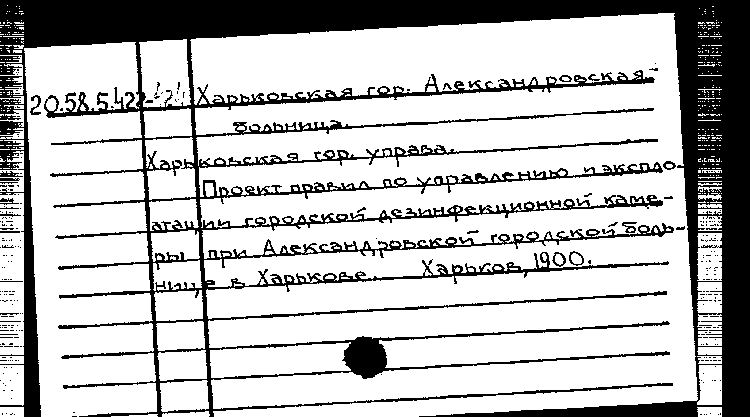 20.58.5.422 Харьковская гор. Александровская
больница.
Харьковская гор. управа.
Проект правил по управлению и экспло-
атации городской дезинфекционной каме-
ры при Александровской городской боль-
нице в Харькове. Харьков, 1900.